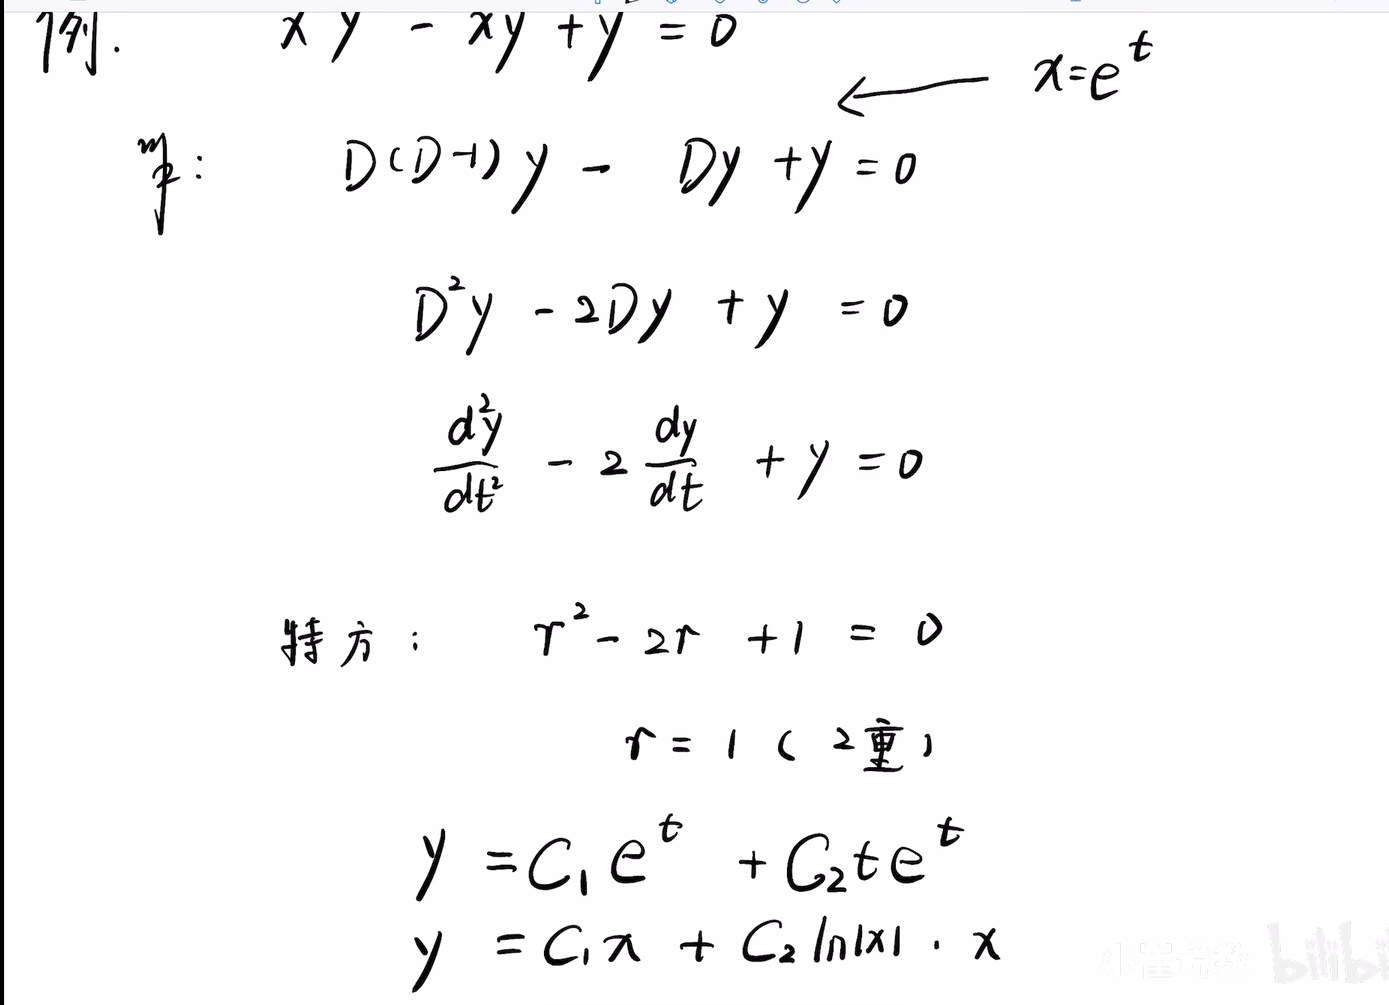 例. xy - xy + y = 0
x=e^t
解: D(D-1)y - Dy + y = 0
D²y - 2Dy + y = 0
d²y/dt² - 2 dy/dt + y = 0
特方: r² - 2r + 1 = 0
r = 1 (2重)
y = C₁e^t + C₂te^t
y = C₁x + C₂ln|x| · x
bilibili